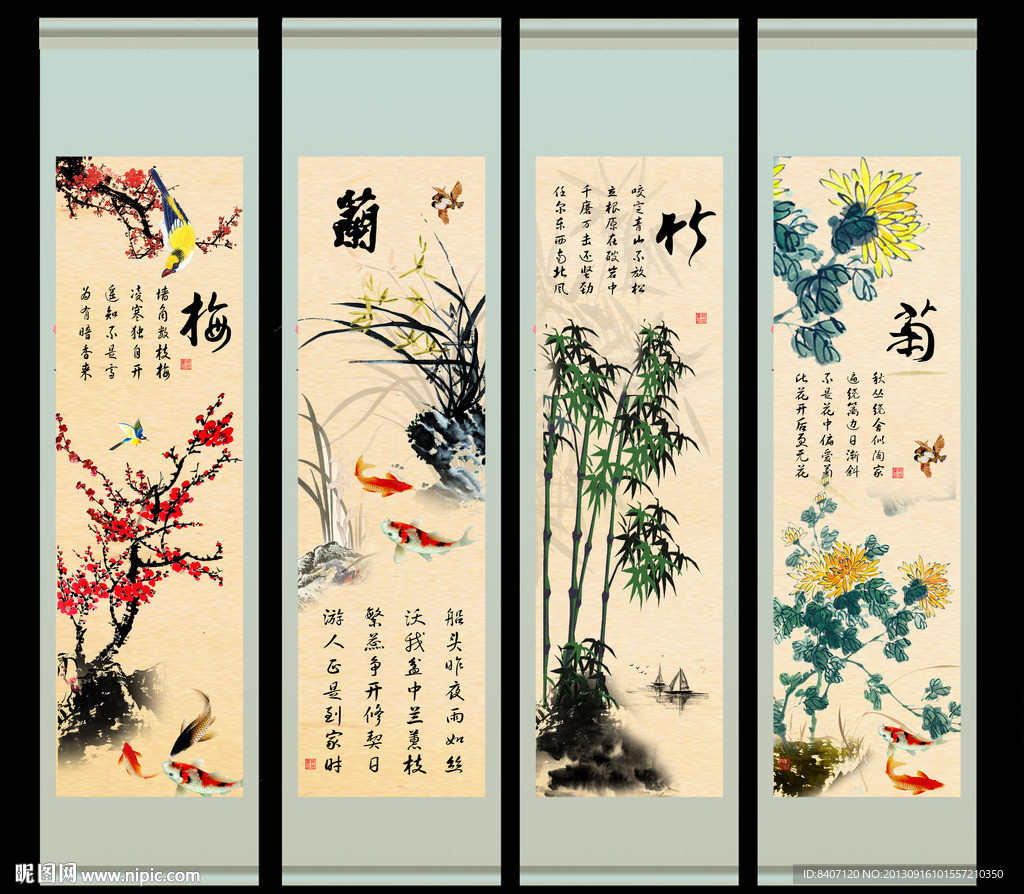 梅
墙角数枝梅
凌寒独自开
遥知不是雪
为有暗香来
蘭
船头昨夜雨如丝
沃我盆中兰蕙枝
繁蕊争开修契日
游人正是到家时
竹
咬定青山不放松
立根原在破岩中
千磨万击还坚劲
任尔东西南北风
菊
秋丛绕舍似陶家
遍绕篱边日渐斜
不是花中偏爱菊
此花开后更无花
昵图网 www.nipic.com
ID:8407120 NO:20130916101557210350